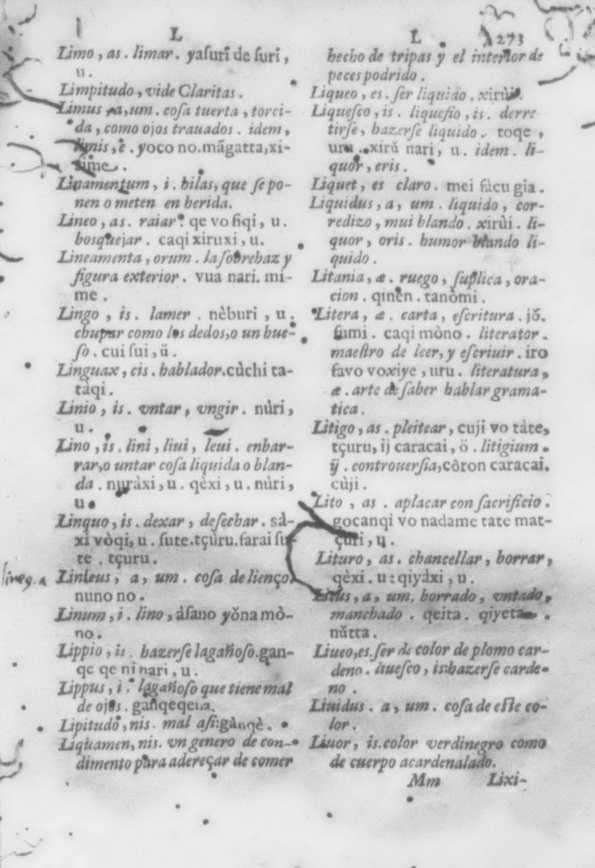 L
L 273
Limo, as. limar. yasuri de suri,
u.
Limpitudo, vide Claritas.
Limus, a, um. cosa tuerta, torci-
da, como ojos trauados. idem,
limis, e. yoco no. mãgatta, xi-
sime.
Linamentum, i. hilas, que se po-
nen o meten en herida.
Lineo, as. raiar. qe vo fiqi, u.
bosquejar. caqi xiruxi, u.
Lineamenta, orum. la sobrehaz y
figura exterior. vua nari. mi-
me.
Lingo, is. lamer. nèburi, u.
chupar como los dedos, o un hue-
so. cui sui, ŭ.
Linguax, cis. hablador. cùchi ta-
tàqi.
Linio, is. vntar, vngir. nùri,
u.
Lino, is. lini, liui, leui. enbar-
rar, o untar cosa liquida o blan-
da. nuràxi, u. qèxi, u. nùri,
u.
Linquo, is. dexar, desechar. sà-
xi vòqi, u. sute. tçuru. farai su-
te. tçuru.
Linteus, a, um. cosa de lienço.
nuno no.
Linum, i. lino, àsano yŏna mò-
no.
Lippio, is. hazerse lagañoso. gan-
qe qe ni nari, u.
Lippus, i. lagañoso que tiene mal
de ojos. ganqeqena.
Lipitudo, nis. mal asi: gànqè.
Liquamen, nis. vn genero de con-
dimento para adereçar de comer
hecho de tripas y el interior de
peces podrido.
Liqueo, es. ser liquido. xirùi.
Liquesco, is. liquesio, is. derre
tirse, hazerse liquido. toqe,
uru. xirŭ nari, u. idem. li-
quor, eris.
Liquet, es claro. mei facu gia.
Liquidus, a, um. liquido, cor-
redizo, mui blando. xirùi. li-
quor, oris. humor blando li-
quido.
Litania, æ. ruego, suplica, ora-
cion. qinèn. tanòmi.
Litera, æ. carta, escritura. jŏ.
fumi. caqi mòno. literator.
maestro de leer, y escriuir. iro
favo voxiye, uru. literatura,
æ. arte de saber hablar grama-
tica.
Litigo, as. pleitear, cuji vo tàte,
tçuru, ij caracai, ŏ. litigium.
ij. controuersia, còron caracai.
cùji.
Lito, as. aplacar con sacrificio.
gocanqi vo nadame tate mat-
çuri, u.
Lituro, as. chancellar, borrar,
qèxi. u: qiyàxi, u.
Litus, a, um. borrado, vntado,
manchado. qeita. qiyeta.
nùtta.
Liueo, es. ser de color de plomo car-
deno. ituesco, is: hazerse carde-
no.
Liuidus. a, um. cosa de este co-
lor.
Liuor, is. color verdinegro como
de cuerpo acardenalado.
Mm Lixi-